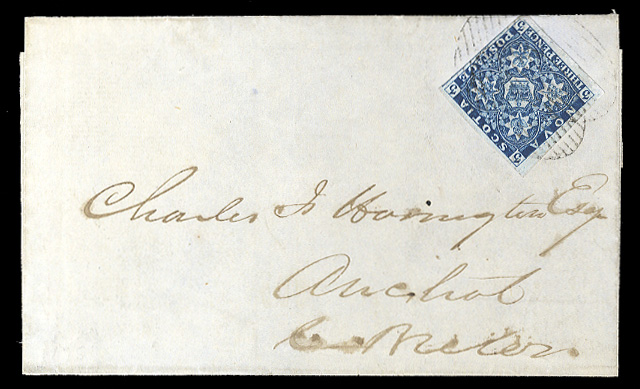 3 THREE PENCE 3
POSTAGE
NOVA
SCOTIA
Charles F Harrington Esqr
Arichat
C Breton